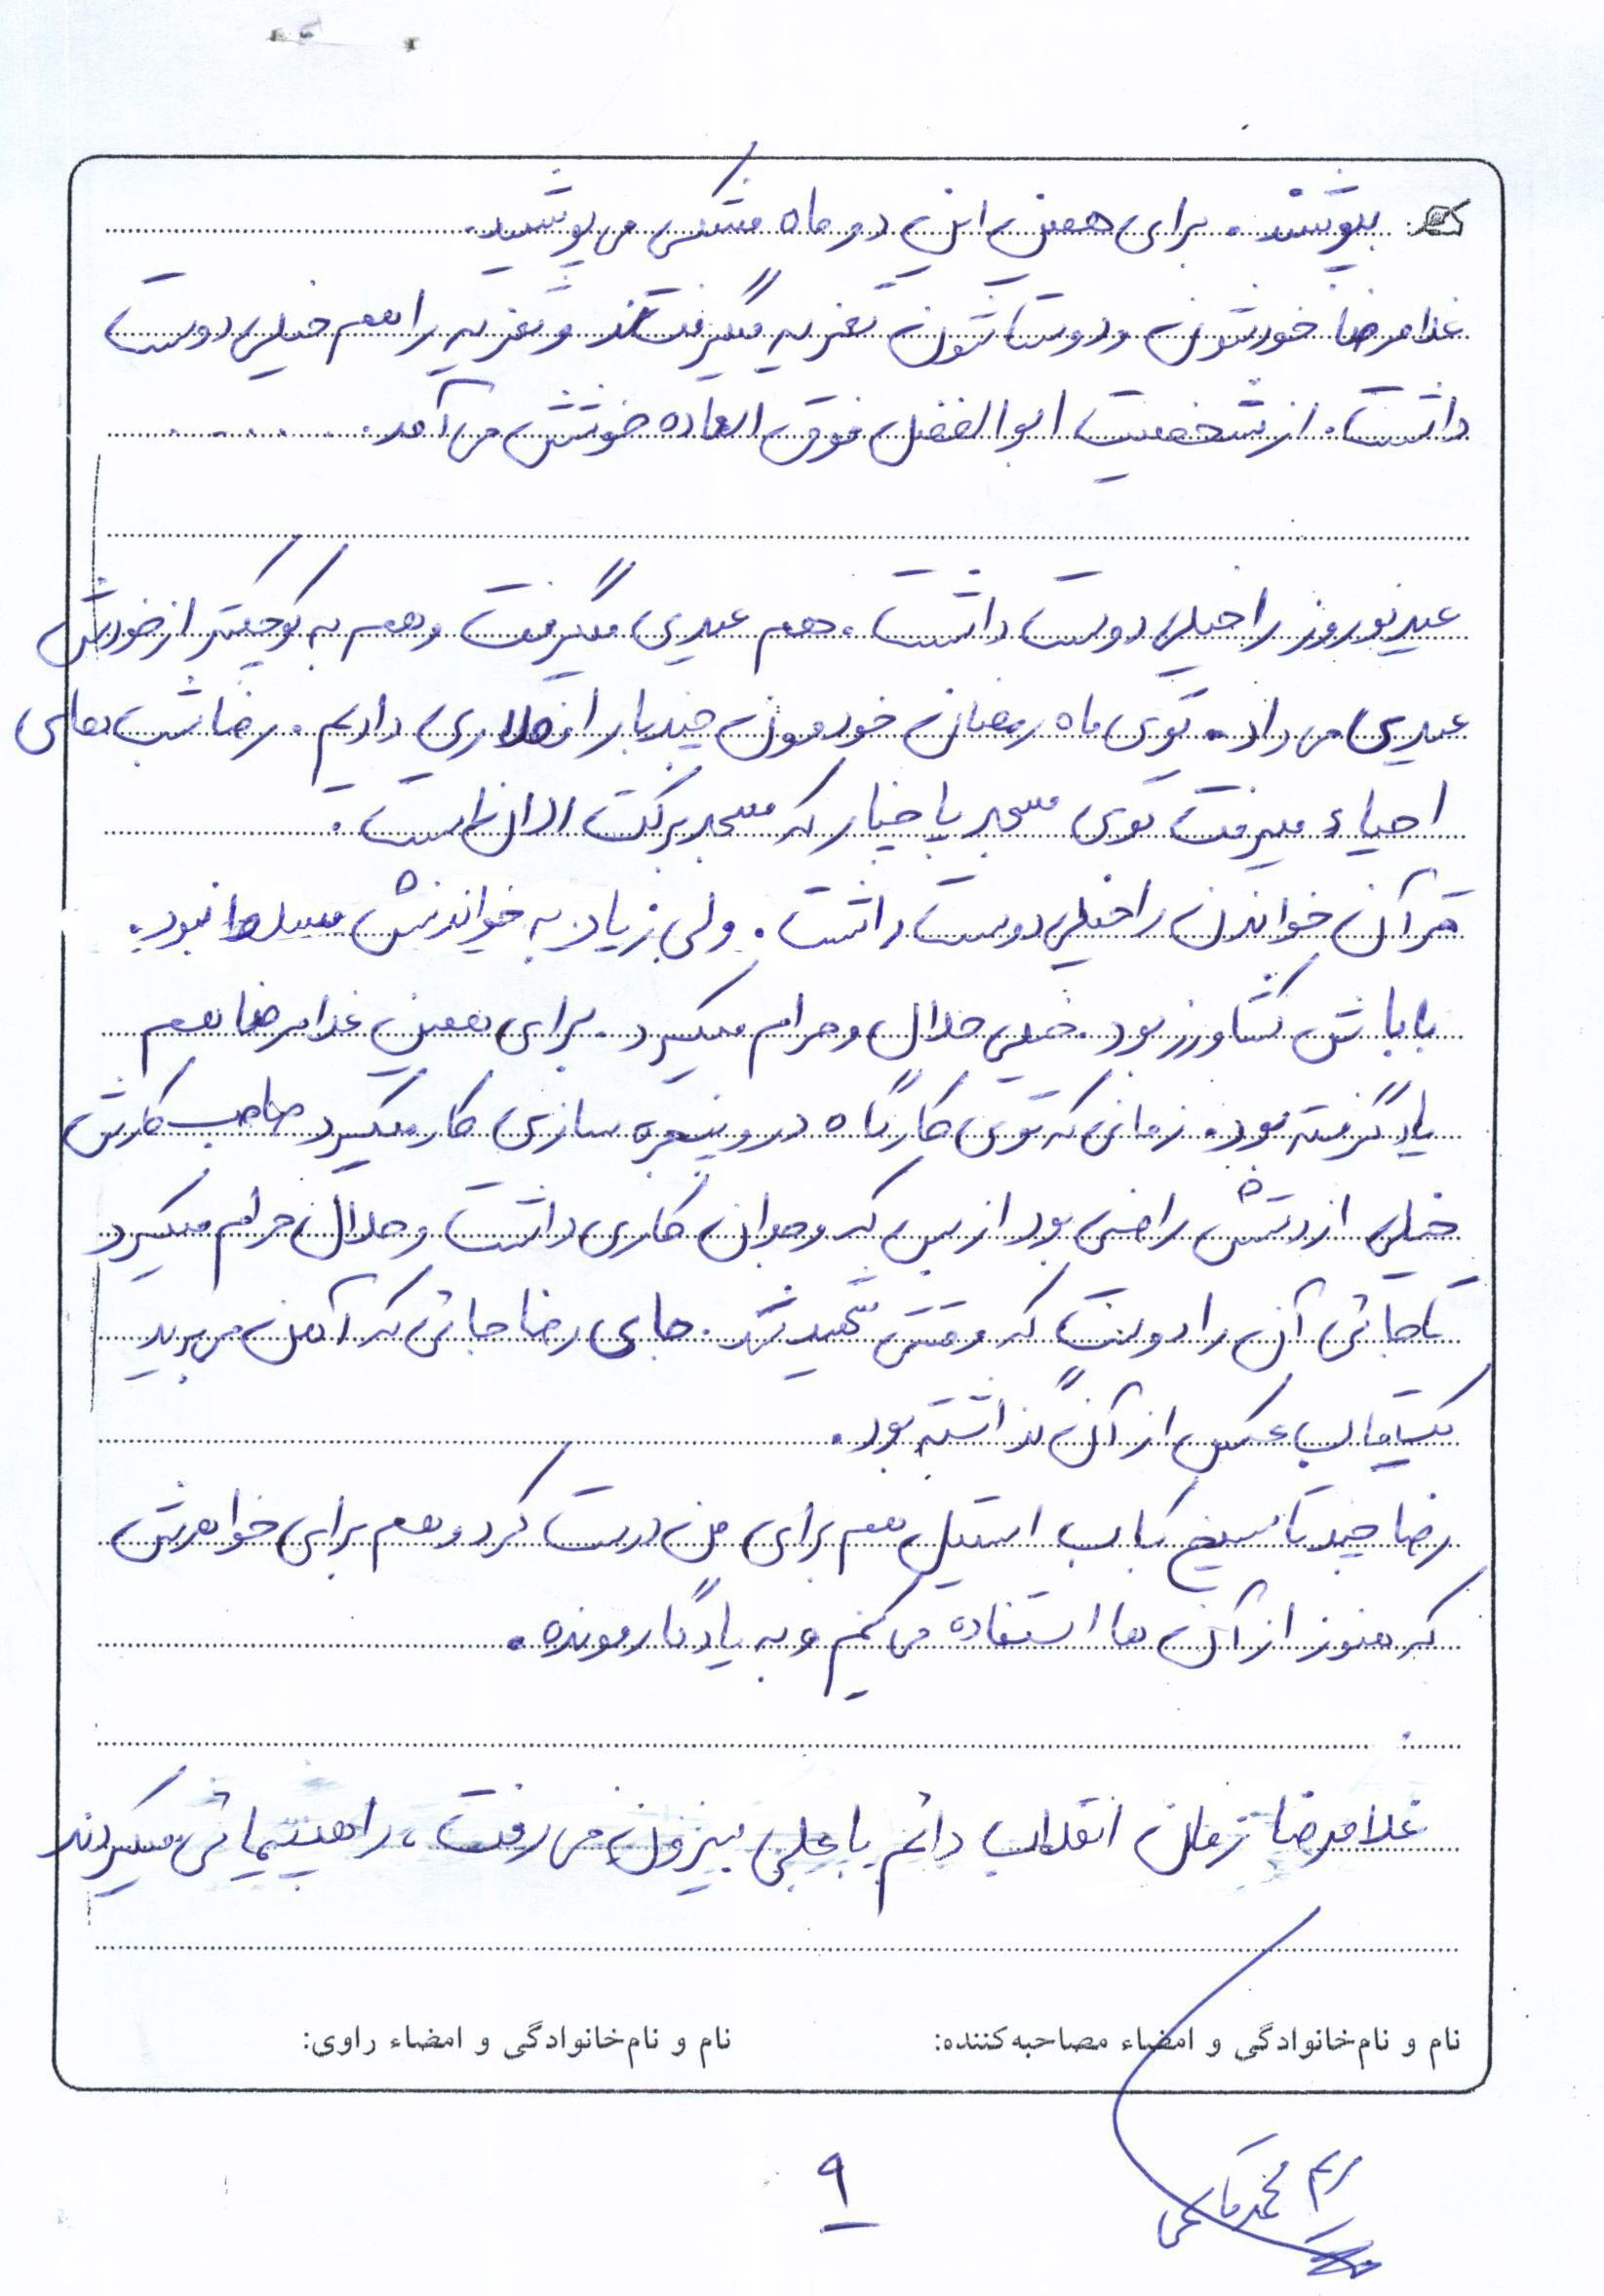 بپوشند. برای همین این دو ماه مشکی می پوشید.
غلامرضا خودشون و دوستاشون تعزیه میگیرفتند و تعزیه را هم خیلی دوست
داشت. از شخصیت ابوالفضل فوق العاده خوشش می آمد.
عید نوروز را خیلی دوست داشت. هم عیدی میگیرفت و هم به کوچیکتر از خودش
عیدی می داد. توی ماه رمضان خودمون چند بار افطاری دادیم. رضا شب های
احیاء میرفت توی مسجد پاچنار که مسجد برکت الان است.
قرآن خواندن را خیلی دوست داشت. ولی زیاد به خواندنش مسلط نبود.
باباش کشاورز بود. خیلی حلال و حرام میکرد. برای همین غلامرضا هم
یاد گرفته بود. زمانی که توی کارگاه در و پنجره سازی کار میکرد صاحب کارش
خیلی ازدستش راضی بود از بس که وجدان کاری داشت و حلال حرام میکرد
تا جائی آن را دوست که وقتی شهید شد. جای رضا جائی که آهن می برید
یک قاب عکس از آن گذاشته بود.
رضا چند تا سیخ کباب استیل هم برای من درست کرد و هم برای خواهرش
که هنوز از آن ها استفاده می کنم و به یادگار مونده.
غلامرضا زمان انقلاب دائم با علی بیرون می رفت، راهپیمائی میکردند
نام و نام‌خانوادگی و امضاء مصاحبه‌کننده:
نام و نام‌خانوادگی و امضاء راوی:
مریم محمدقاسمی
۹